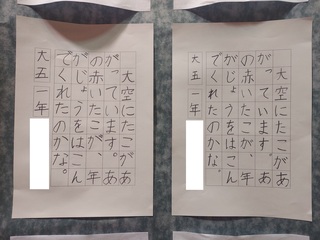 大空にたこがあ
がっています。あ
の赤いたこが、年
がじょうをはこん
でくれたのかな。
大五 一年
大空にたこがあ
がっています。あ
の赤いたこが、年
がじょうをはこん
でくれたのかな。
大五 一年